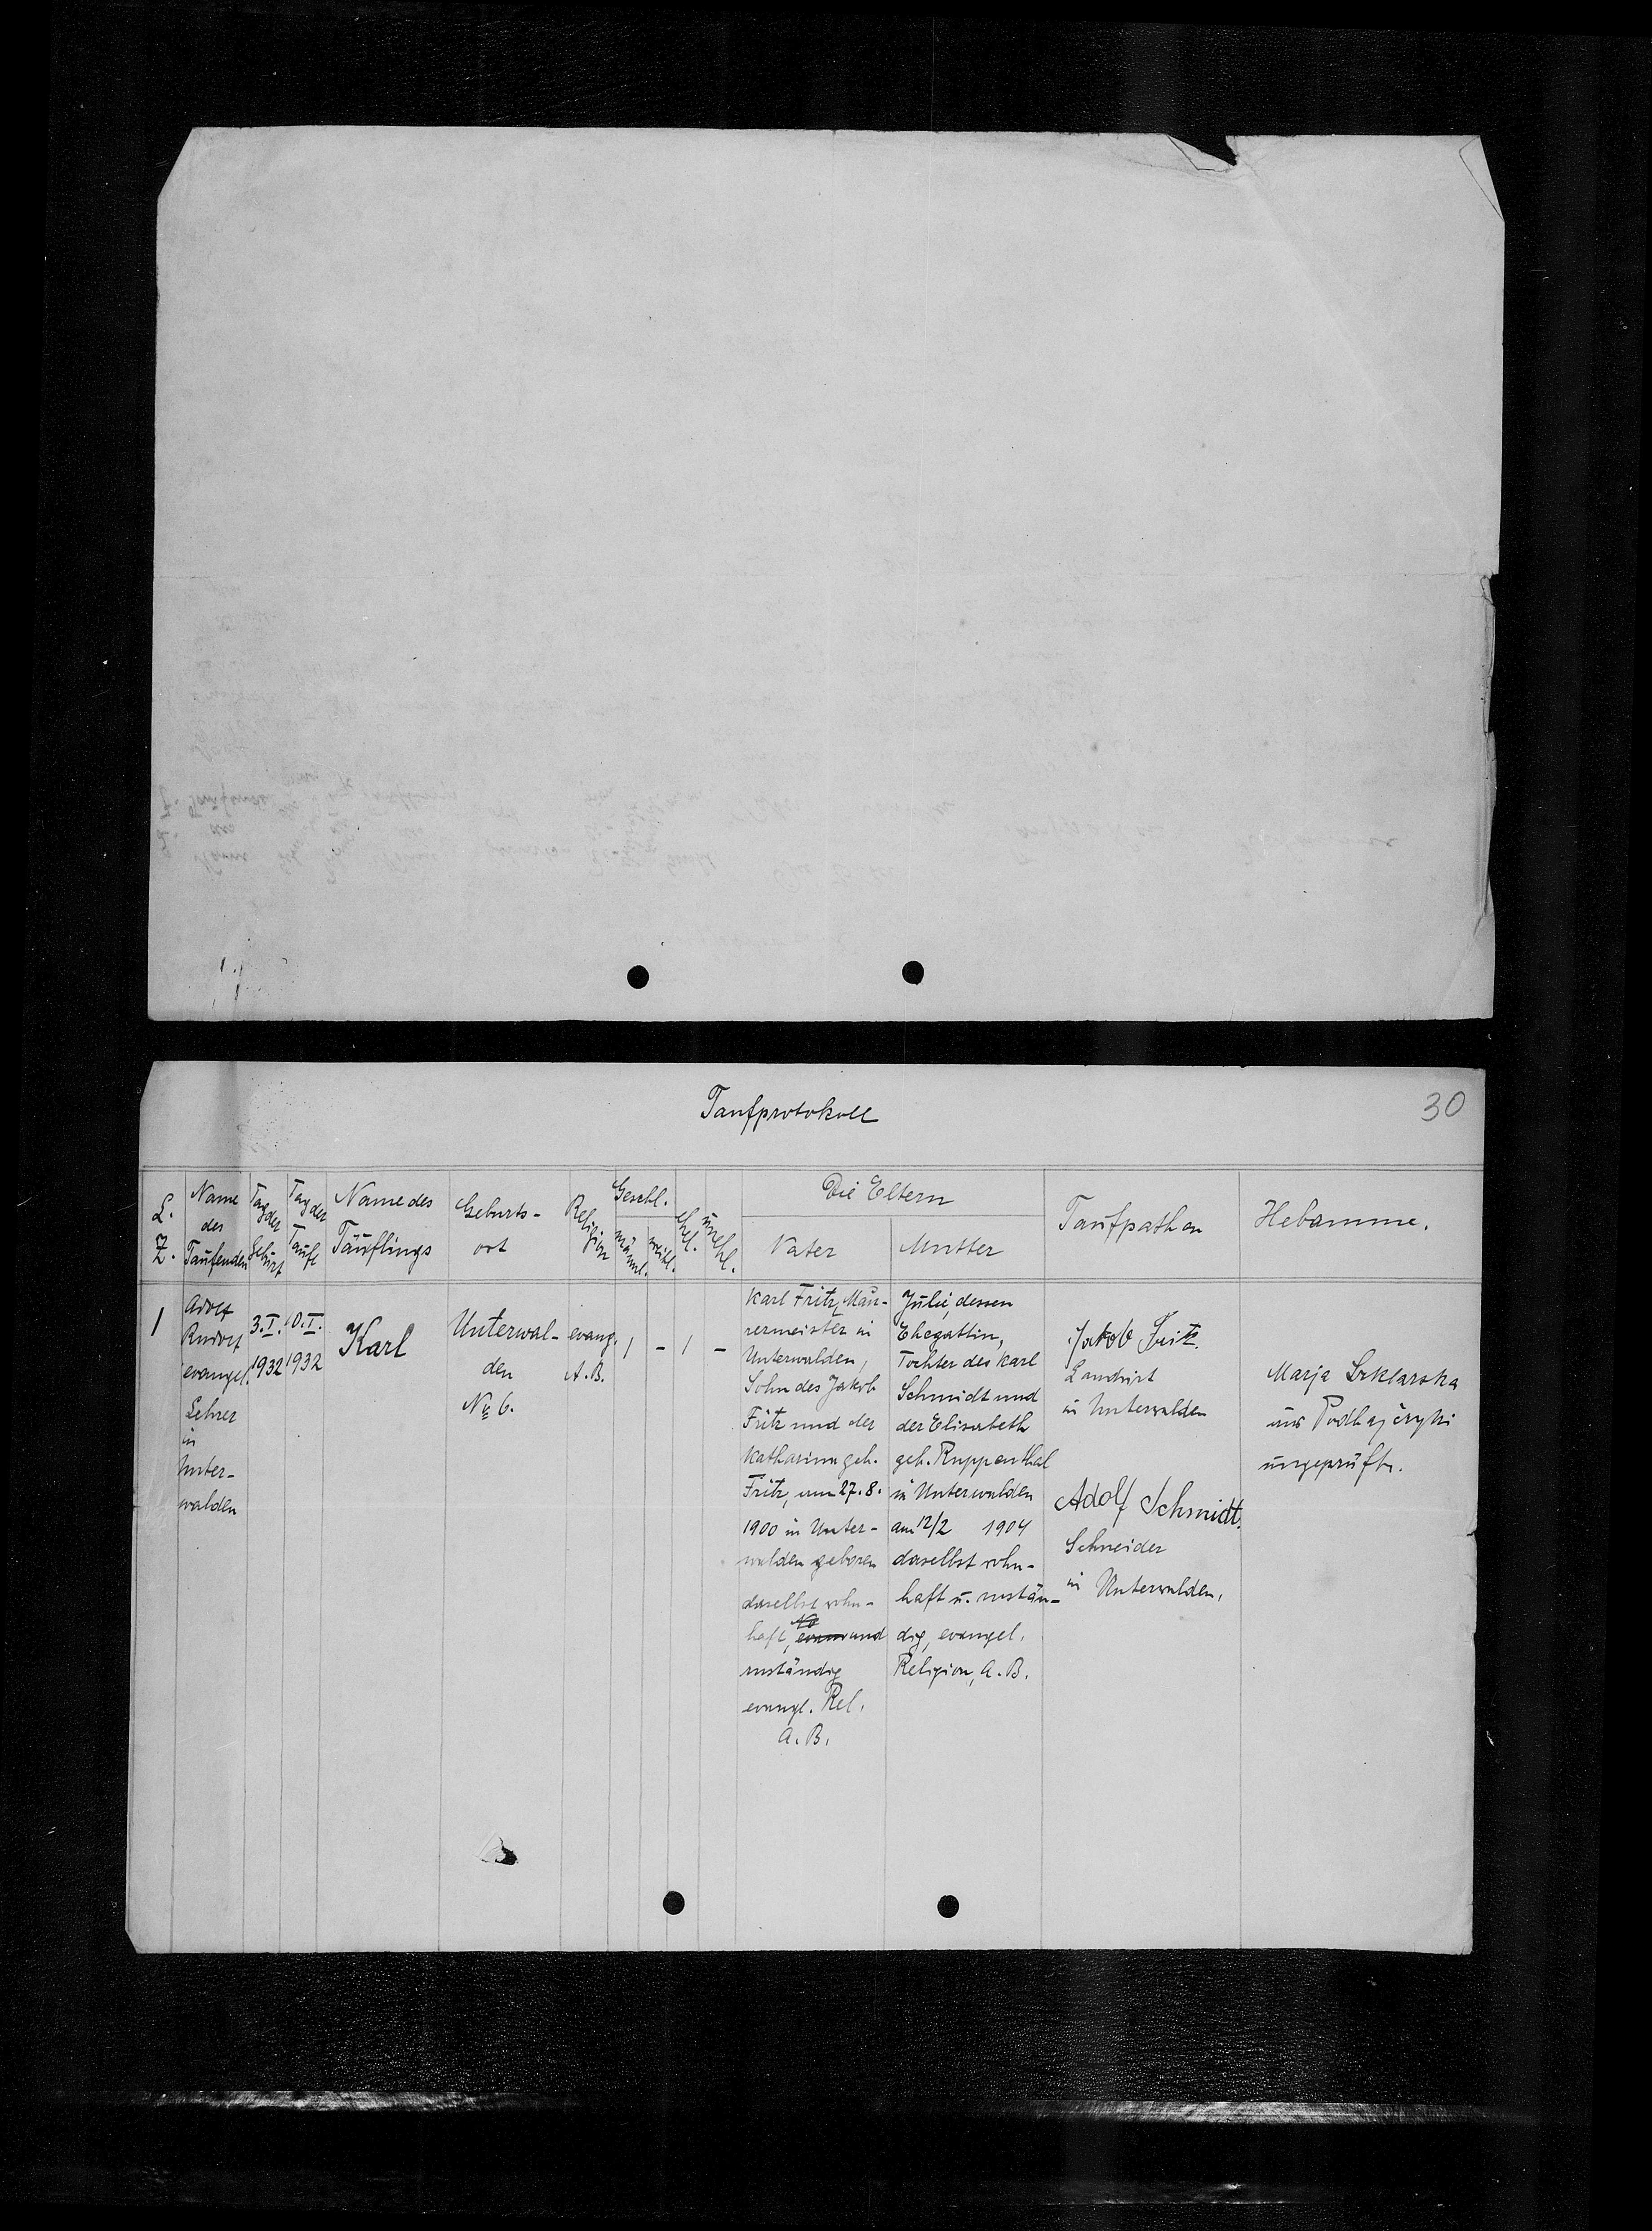 Taufprotokoll
30
L. Z.
Name des Taufenden
Tag der Geburt
Tag der Taufe
Name des Täuflings
Geburts-
ort
Religion
Geschl.
männl.
weibl.
ehel.
unehl.
Die Eltern
Vater
Mutter
Taufpathen
Hebamme.
1
Adolf
Rudolf
evangel.
Lehrer
in
Unter-
walden
3.I.
1932
10.I.
1932
Karl
Unterwal-
den
No 6.
evang.
A.B.
1
-
1
-
Karl Fritz, Mau-
rermeister in
Unterwalden,
Sohn des Jakob
Fritz und der
Katharina geb.
Fritz, am 27.8.
1900 in Unter-
walden geboren
daselbst wohn-
haft, und
zuständig
evangl. Rel.
A.B.
Julie, dessen
Ehegattin,
Tochter des Karl
Schmidt und
der Elisabeth
geb. Ruppenthal
in Unterwalden
am 12/2 1904
daselbst wohn-
haft u. zustän-
dig, evangel.
Religion, A.B.
Jakob Fritz.
Landwirt
in Unterwalden
Adolf Schmidt.
Schneider
in Unterwalden.
Marja Szklarska
aus Podhajczyki
ungeprüft.